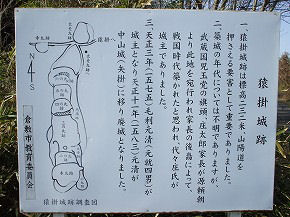 猿掛城跡
一、猿掛城跡は標高二三二米、山陽道を
押さえる要害として重要でありました。
二、築城の年代については不明でありますが、
武蔵国児玉党の旗頭、庄太郎家長が源頼朝
より此地を宛行われ家長の後裔によって、
戦国時代築かれたと思われ、代々庄氏が
城主でありました。
三、天正三年（一五七五）毛利元清（元就四男）が
城主となり天正十一年（一五八三）元清が
中山城（矢掛）に移り廃城となりました。
倉敷市教育委員会
N
4
S
猿掛城跡調査図